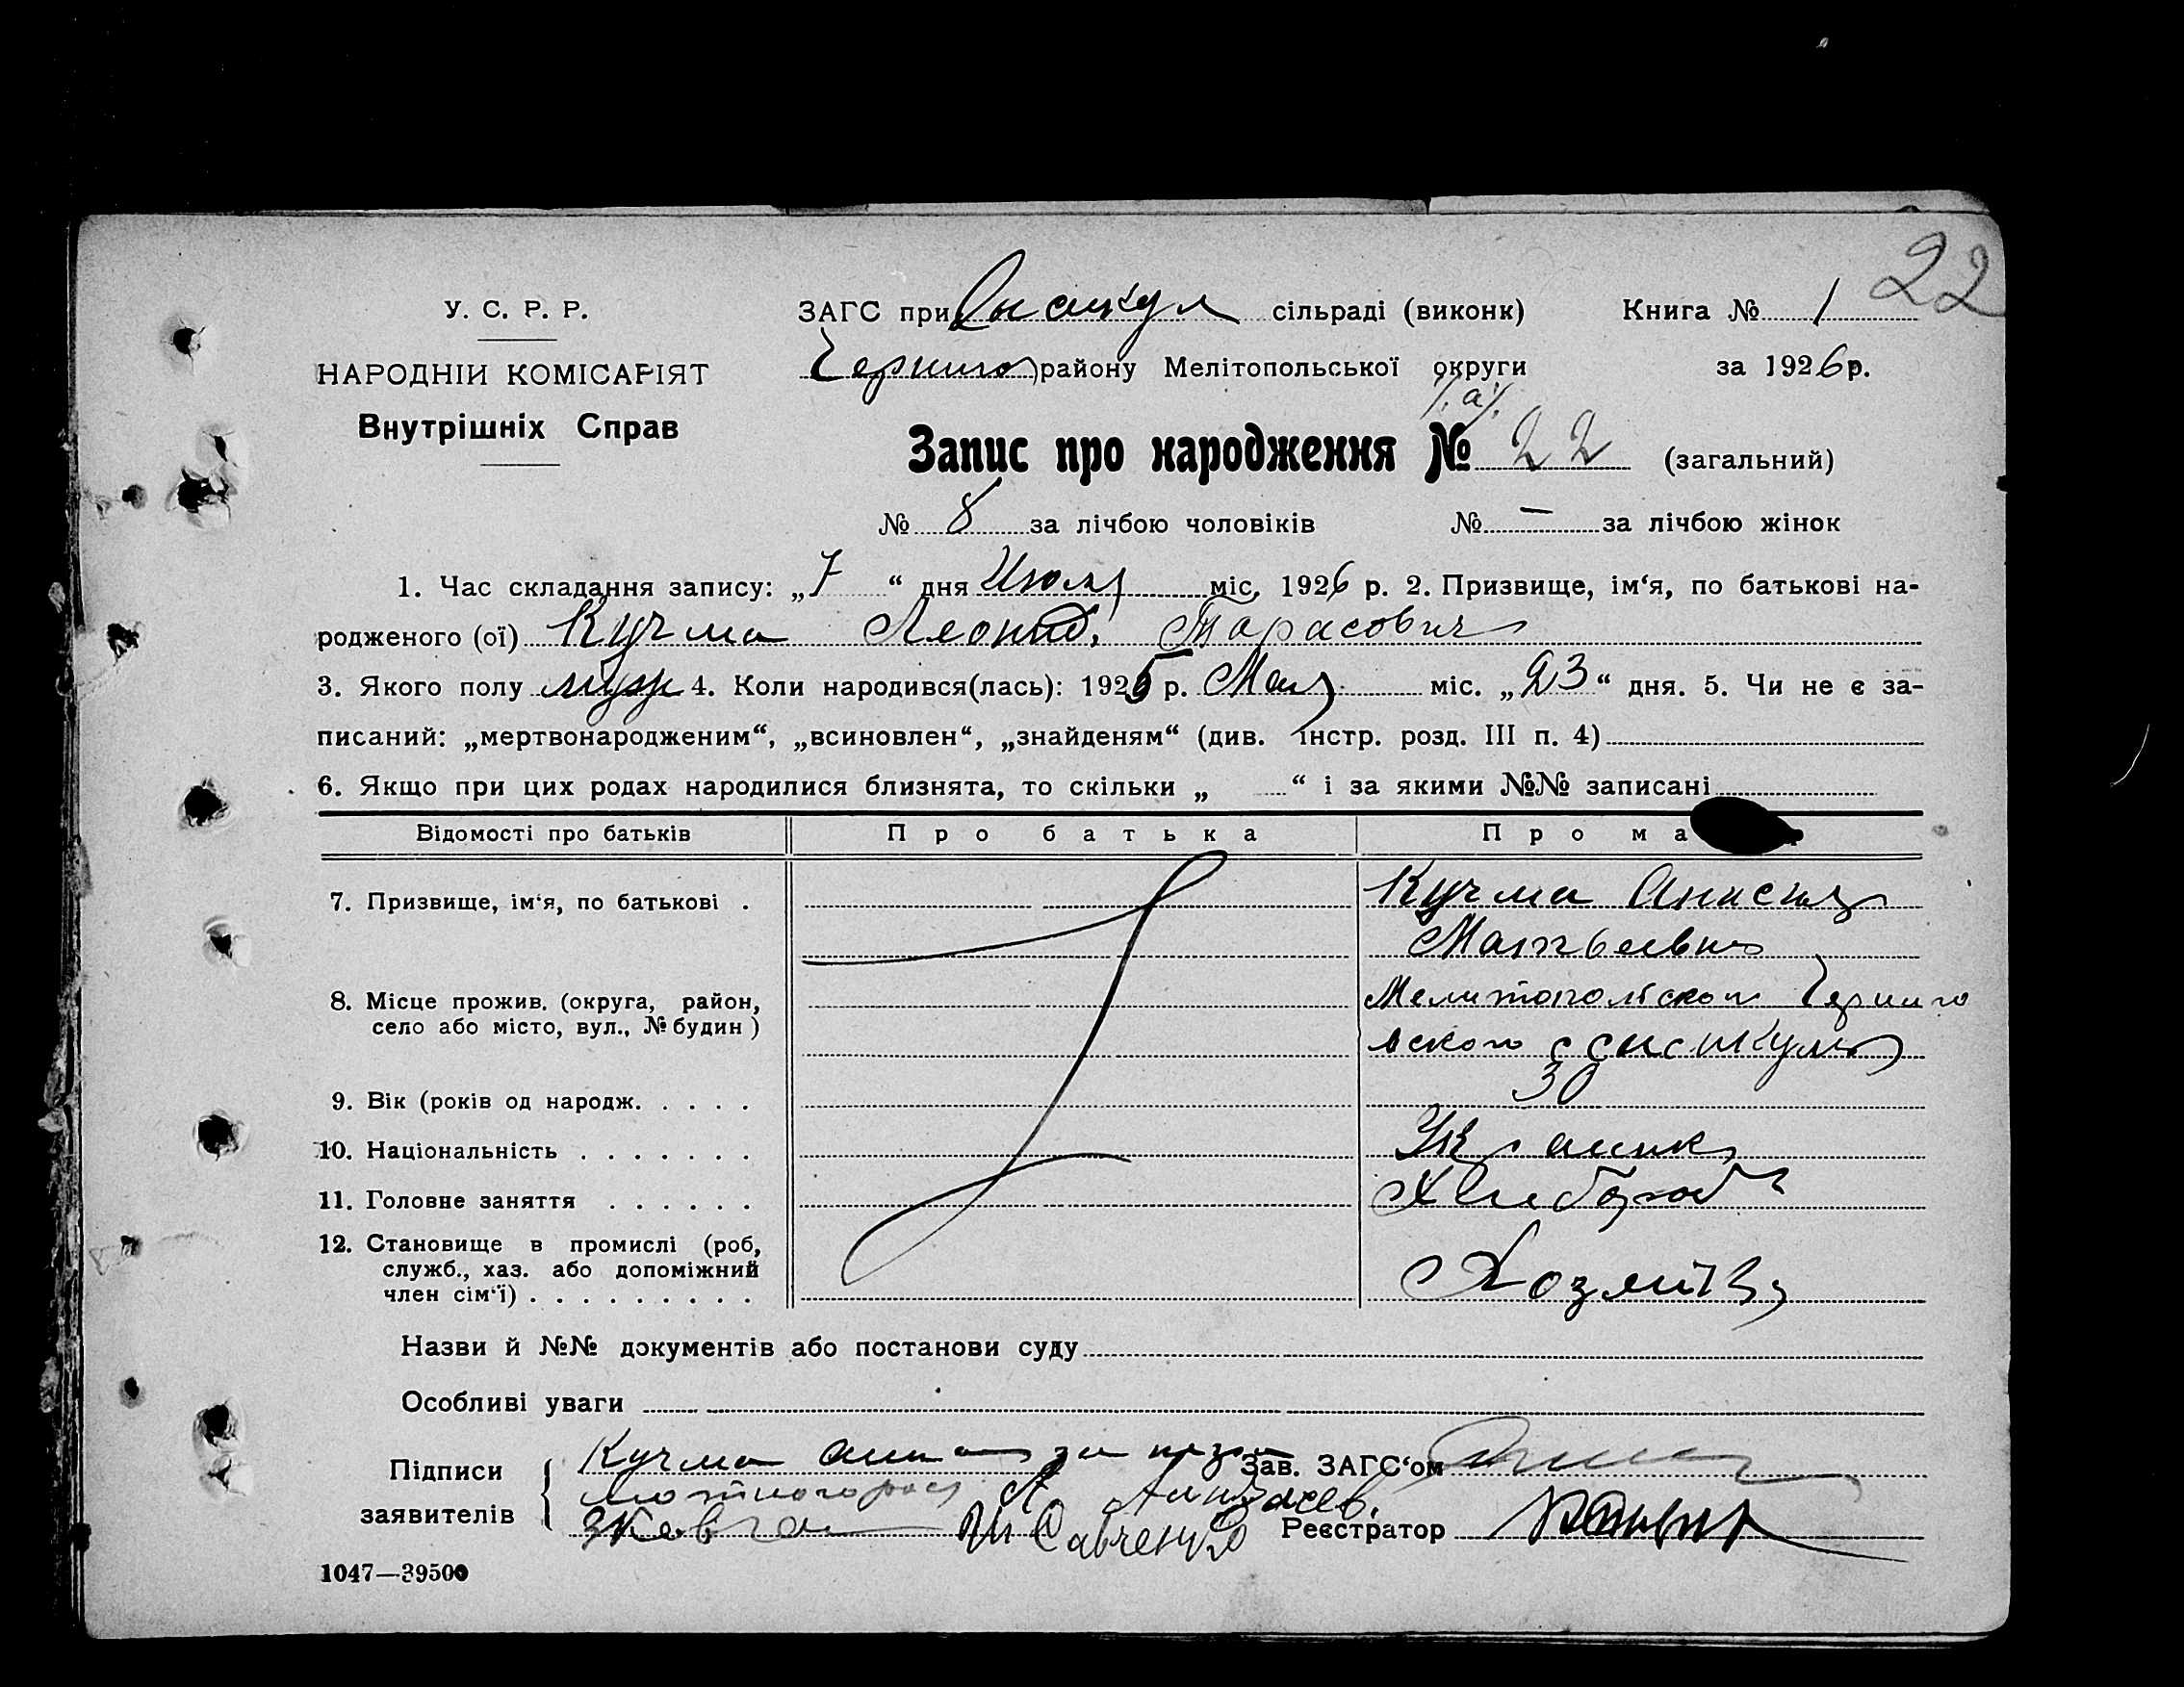 22
У. С. Р. Р.
ЗАГС при сільраді (виконк)
Книга № 1
НАРОДНІИ КОМІСАРІЯТ
району Мелітопольської округи
за 1926 р.
Внутрішніх Справ
Запис про народження № 22 (загальний)
№ 8 за лічбою чоловіків № – за лічбою жінок
1. Час складання запису: „7“ дня Июля міс. 1926 р. 2. Призвище, ім‘я, по батькові на-
родженого (ої) Кучма Леонид Тарасович
3. Якого полу муж 4. Коли народився(лась): 1925 р. Мая міс. „23“ дня. 5. Чи не є за-
писаний: „мертвонародженим“, „всиновлен“, „знайденям“ (див. інстр. розд. III п. 4)
6. Якщо при цих родах народилися близнята, то скільки „ “ і за якими №№ записані
Відомості про батьків
Про батька
Про ма
7. Призвище, ім‘я, по батькові .
Кучма Анисия
Матвеевна
8. Місце прожив. (округа, район,
село або місто, вул., № будин )
Мелитопольского Черниго
вского с
9. Вік (років од народж. . . . .
30
10. Національність . . . . . . .
Украинка
11. Головне заняття . . . . . .
Хлебороб
12. Становище в промислі (роб,
служб., хаз. або допоміжний
член сім‘ї) . . . . . . . . .
Хозяйка
Назви й №№ документів або постанови суду
Особливі уваги
Підписи
заявителів
Кучма
Зав. ЗАГС‘ом
Савченко
Реєстратор
1047—39500